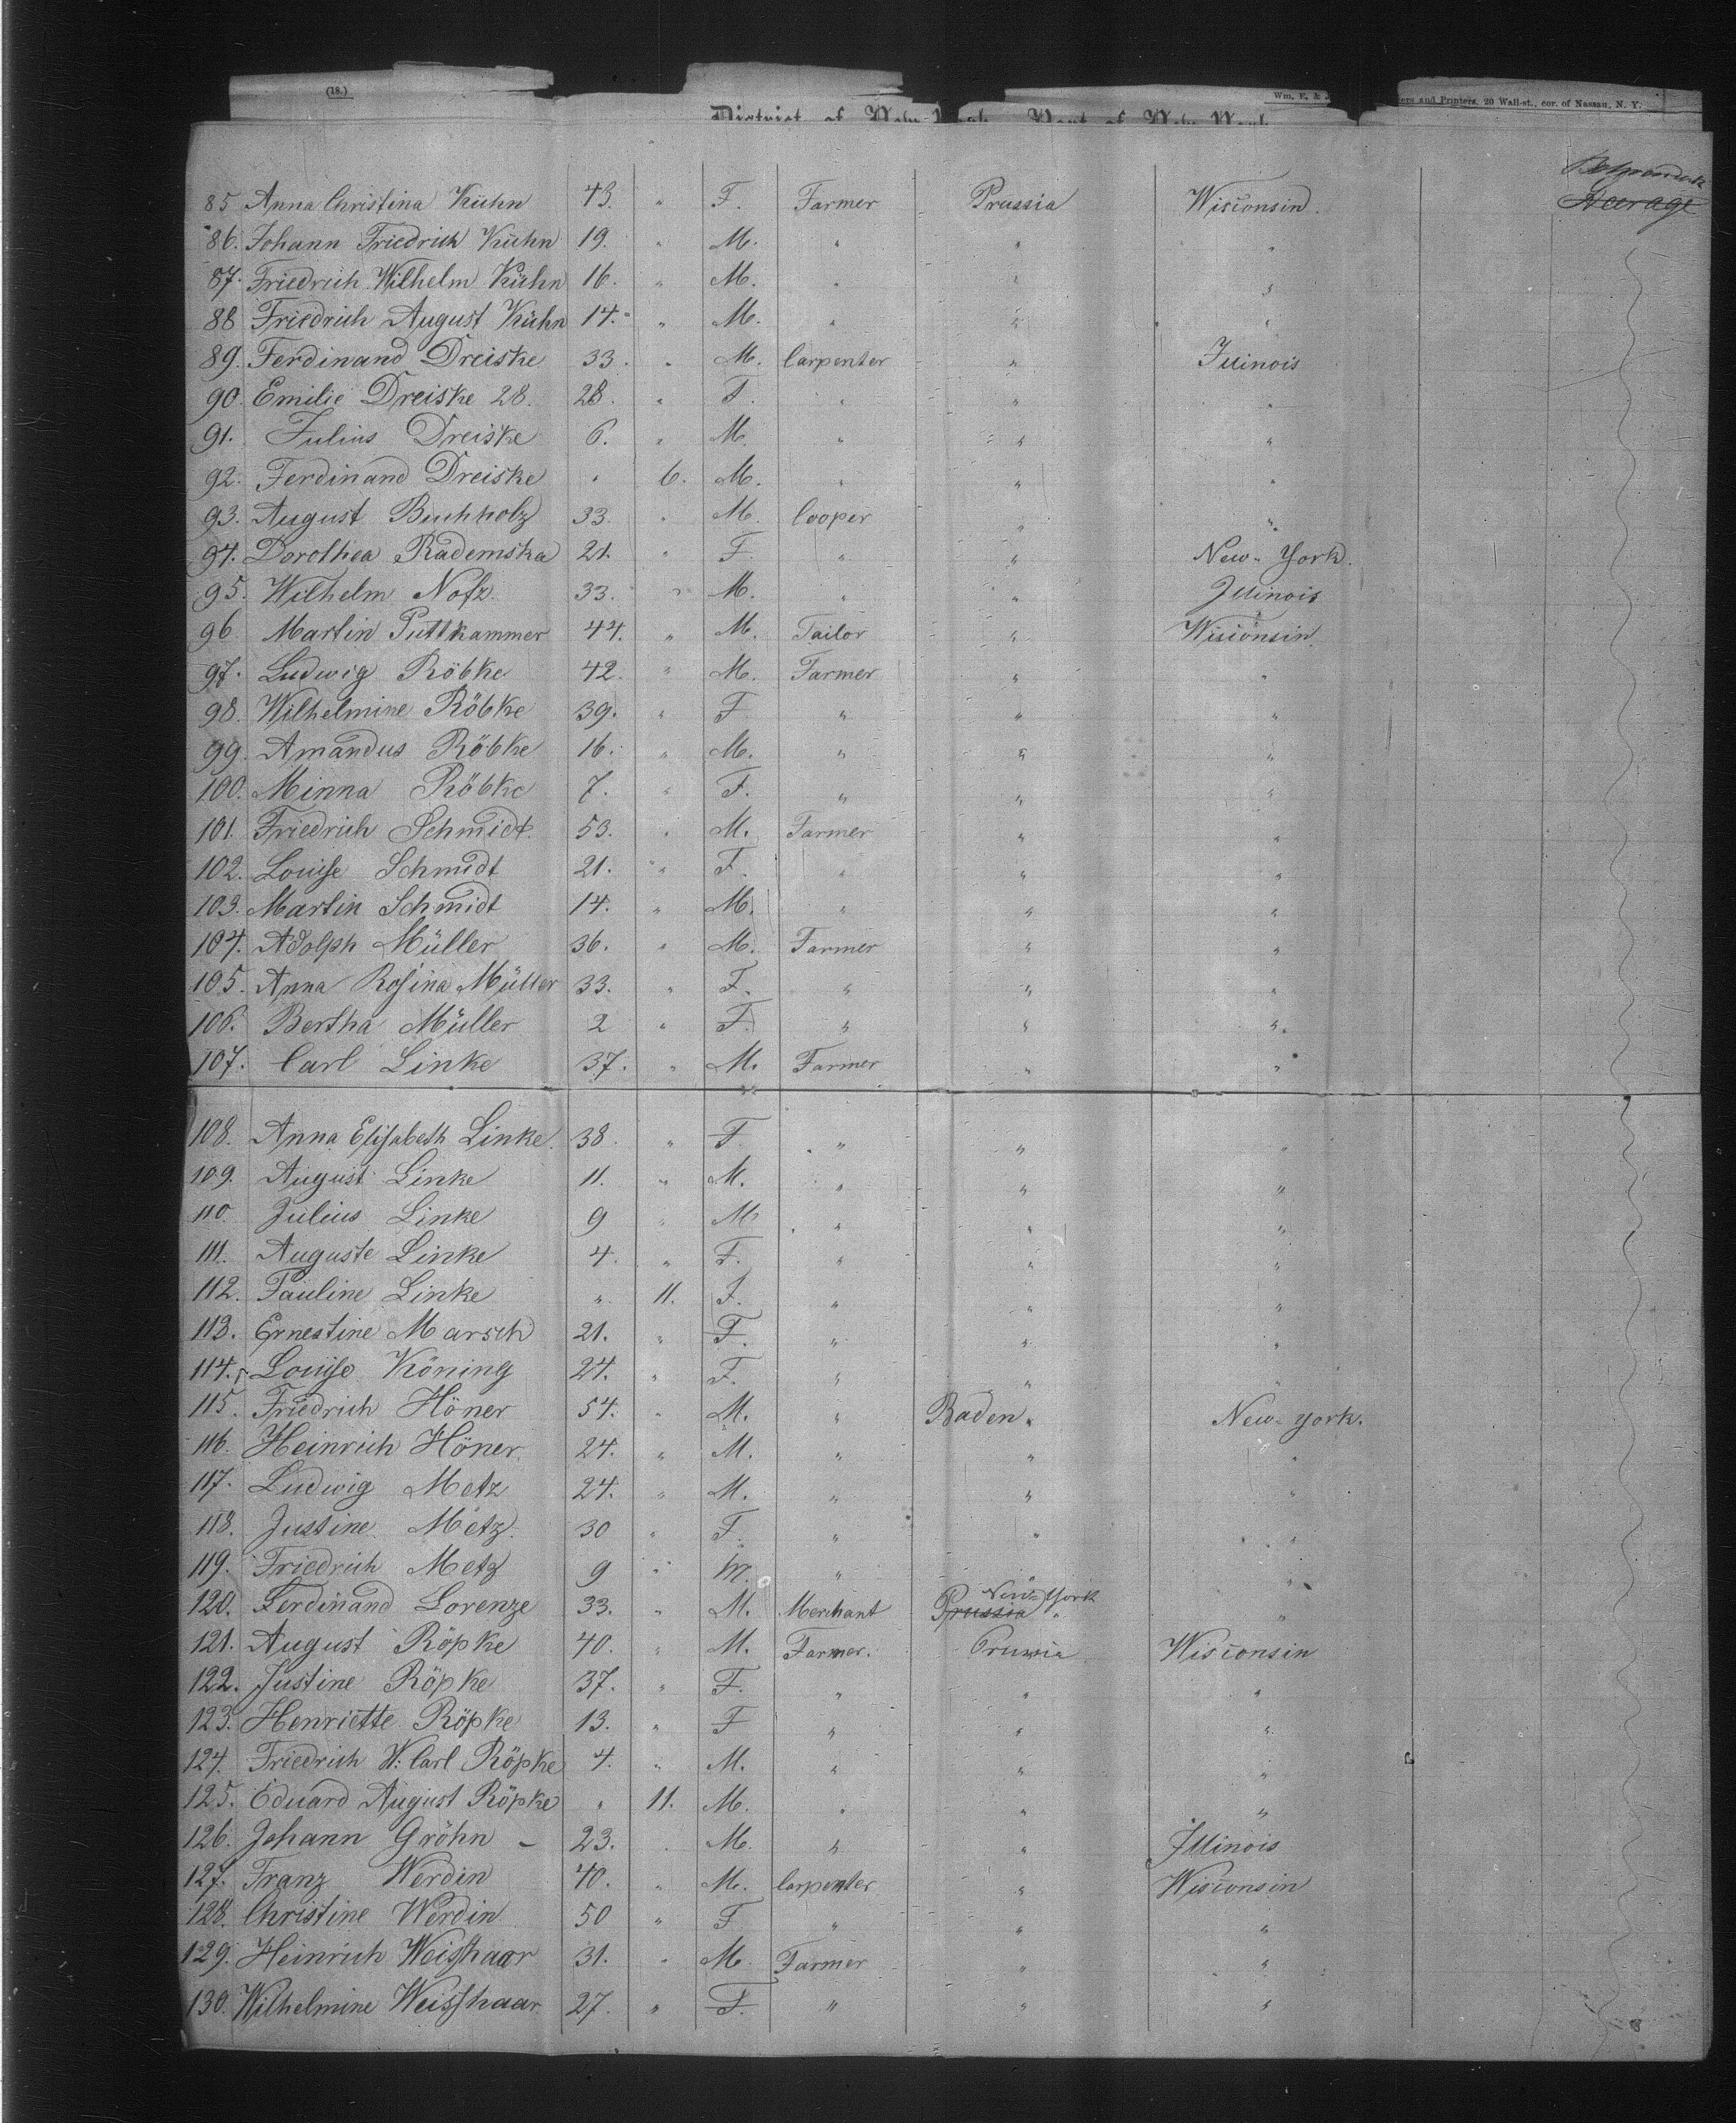 (18.)
Wm. E. &
ers and Printers, 20 Wall-st., cor. of Nassau, N. Y.
District of New-York Port of New York
Steerage
85 Anna Christina Kühn 43. " F. Farmer Prussia Wisconsin.
86. Johann Friedrich Kühn 19. " M. " " "
87. Friedrich Wilhelm Kühn 16. " M. " " "
88 Friedrich August Kühn 14. " M. " " "
89. Ferdinand Dreiske 33. " M. Carpenter " Illinois
90. Emilie Dreiske 28. 28. " F. " " "
91. Julius Dreiske 6. " M. " " "
92. Ferdinand Dreiske " 6. M. " " "
93. August Buchholz 33. " M. Cooper " "
94. Dorothea Rademska 21. " F. " " New-York.
95. Wilhelm Nofz 33. " M. " " Illinois
96 Martin Puttkammer 44. " M. Tailor " Wisconsin.
97. Ludwig Röbke 42. " M. Farmer " "
98. Wilhelmine Röbke 39. " F " " "
99. Amandus Röbke 16. " M. " " "
100. Minna Röbke 7. " F. " " "
101. Friedrich Schmidt. 53. " M. Farmer " "
102. Louise Schmidt 21. " F. " " "
103. Martin Schmidt 14. " M. " " "
104. Adolph Müller 36. " M. Farmer " "
105. Anna Rosina Müller 33. " F. " " "
106. Bertha Müller 2 " F. " " "
107. Carl Linke 37. " M. Farmer " "
108. Anna Elisabeth Linke. 38. " F. " " "
109. August Linke 11. " M. " " "
110. Julius Linke 9 " M " " "
111. Auguste Linke 4. " F. " " "
112. Pauline Linke " 11. F. " " "
113. Ernestine Marsch 21. " F. " " "
114. Louise Köning 24. " F. " " "
115. Friedrich Höner 54. " M. " Baden " New-York.
116. Heinrich Höner. 24. " M. " " "
117. Ludwig Metz 24. " M. " " "
118. Justine Metz 30 " F. " " "
119. Friedrich Metz 9 " M. " " "
120. Ferdinand Lorenze 33. " M. Merchant Prussia New-York " "
121. August Röpke 40. " M. Farmer. Prussia Wisconsin
122. Justine Röpke 37. " F. " " "
123. Henriette Röpke 13. " F " " "
124. Friedrich W. Carl Röpke 4. " M. " " "
125. Eduard August Röpke " 11. M. " " "
126. Johann Gröhn - 23. " M. " " Illinois
127. Franz Werdin 40. " M. Carpenter " Wisconsin
128. Christine Werdin 50 " F " " "
129. Heinrich Weisshaar 31. " M. Farmer " "
130. Wilhelmine Weisshaar 27. " F. " " "